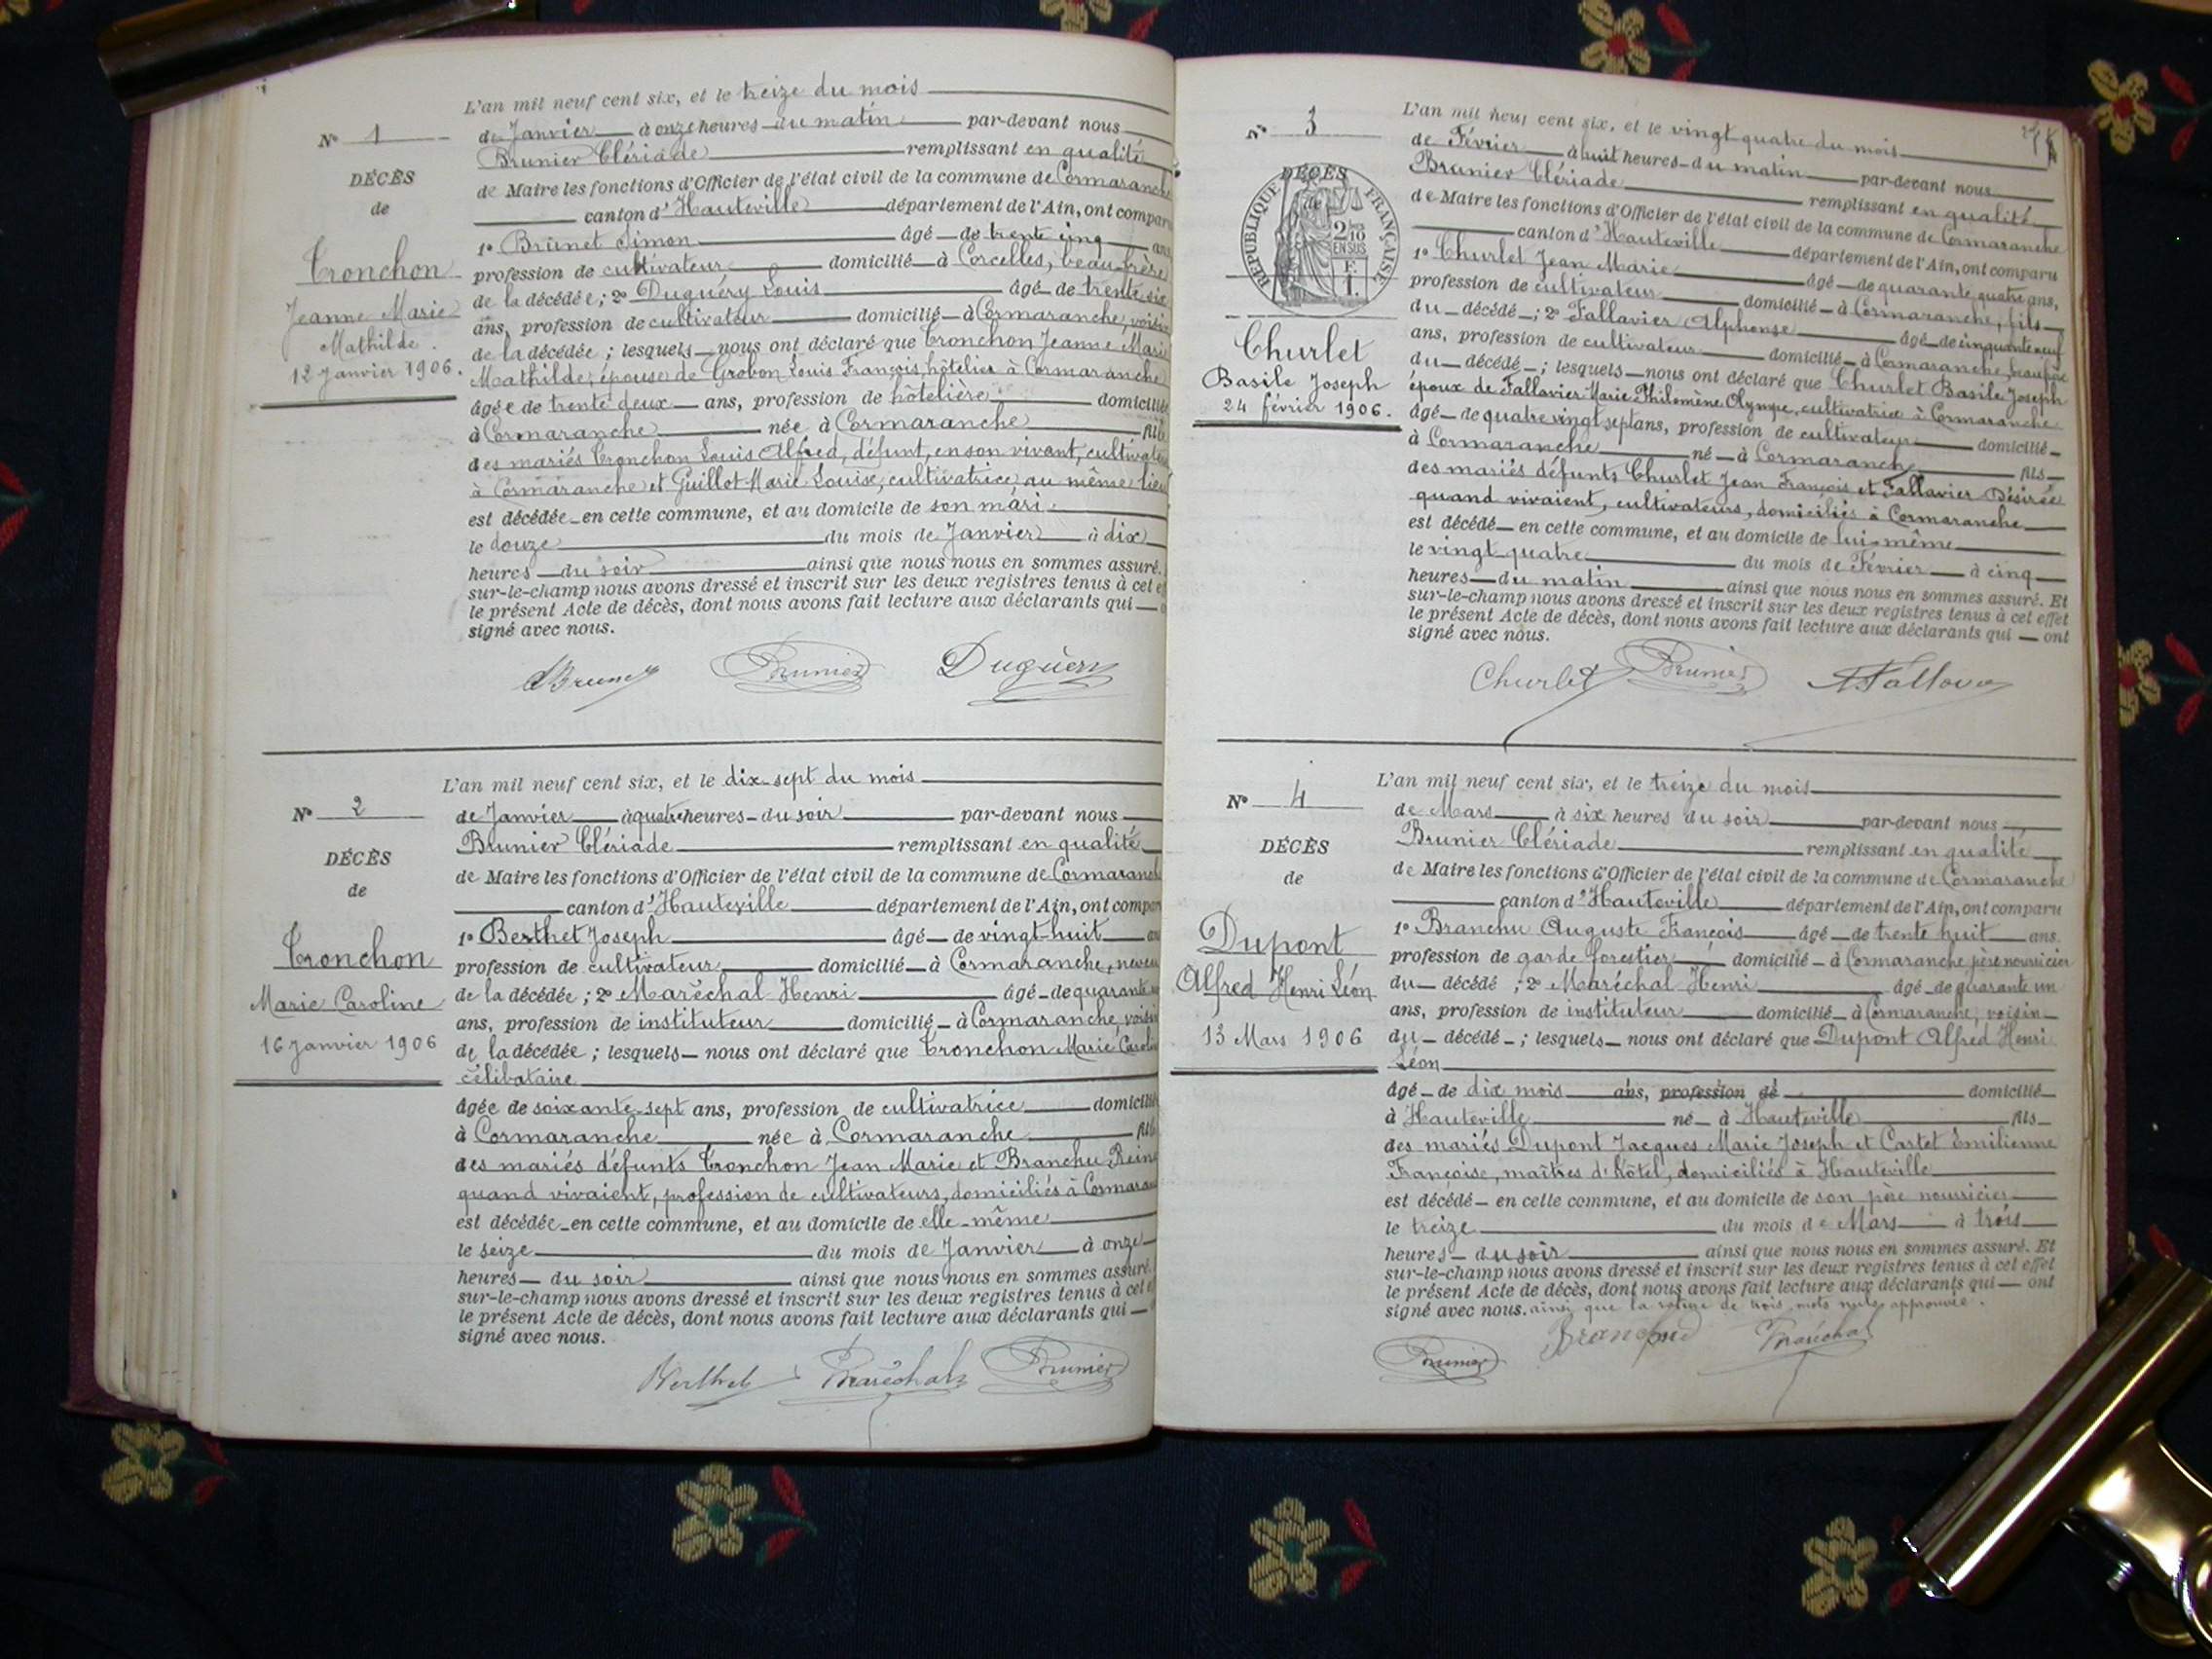 L'an mil neuf cent six, et le treize du mois
N° 1
de Janvier à onze heures du matin par-devant nous
Brunier Clériade remplissant en qualité
DÉCÈS
de Maire les fonctions d'Officier de l'état civil de la commune de Cormaranche
de
canton d'Hauteville département de l'Ain, ont comparu
1° Brunet Simon âgé de trente cinq ans,
Tronchon
profession de cultivateur domicilié à Corcelles, beau-frère
de la décédée; 2° Duguéry Louis âgé de trente six
Jeanne Marie
ans, profession de cultivateur domicilié à Cormaranche, voisin
Mathilde.
de la décédée; lesquels nous ont déclaré que Tronchon Jeanne Marie
12 Janvier 1906.
Mathilde, épouse de Grobon Louis François, hôtelier à Cormaranche
âgée de trente deux ans, profession de hôtelière domiciliée
à Cormaranche née à Cormaranche fille
des mariés Tronchon Louis Alfred, défunt, en son vivant, cultivateur
à Cormaranche et Guillot Marie Louise, cultivatrice, au même lieu
est décédée en cette commune, et au domicile de son mari.
le douze du mois de Janvier à dix
heures du soir ainsi que nous nous en sommes assuré.
sur-le-champ nous avons dressé et inscrit sur les deux registres tenus à cet
le présent Acte de décès, dont nous avons fait lecture aux déclarants qui
signé avec nous.
Brunet Brunier Duguery
L'an mil neuf cent six, et le dix-sept du mois
N° 2
de Janvier à quatre heures du soir par-devant nous
Brunier Clériade remplissant en qualité
DÉCÈS
de Maire les fonctions d'Officier de l'état civil de la commune de Cormaranche
de
canton d'Hauteville département de l'Ain, ont comparu
1° Berthet Joseph âgé de vingt-huit
Tronchon
profession de cultivateur domicilié à Cormaranche, neveu
Marie Caroline
de la décédée; 2° Maréchal Henri âgé de quarante
ans, profession de instituteur domicilié à Cormaranche, voisin
16 Janvier 1906
de la décédée; lesquels nous ont déclaré que Tronchon Marie Caroline
célibataire
âgée de soixante-sept ans, profession de cultivatrice domiciliée
à Cormaranche née à Cormaranche fille
des mariés défunts Tronchon Jean Marie et Branchu Reine
quand vivaient, profession de cultivateurs, domiciliés à Cormaranche
est décédée en cette commune, et au domicile de elle-même
le seize du mois de Janvier à onze
heures du soir ainsi que nous nous en sommes assuré.
sur-le-champ nous avons dressé et inscrit sur les deux registres tenus à cet
le présent Acte de décès, dont nous avons fait lecture aux déclarants qui
signé avec nous.
Berthet Maréchal Brunier
L'an mil neuf cent six, et le vingt quatre du mois
N° 3
de Février à huit heures du matin par-devant nous
Brunier Clériade remplissant en qualité
DÉCÈS
de
RÉPUBLIQUE FRANÇAISE
2/10 EN SUS
F. 1.
de Maire les fonctions d'Officier de l'état civil de la commune de Cormaranche
canton d'Hauteville département de l'Ain, ont comparu
1° Churlet Jean Marie âgé de quarante quatre ans,
profession de cultivateur domicilié à Cormaranche, fils
du décédé; 2° Fallavier Alphonse âgé de cinquante neuf
ans, profession de cultivateur domicilié à Cormaranche,
Churlet
du décédé; lesquels nous ont déclaré que Churlet Basile Joseph
Basile Joseph
époux de Fallavier Marie Philomène Olympe, cultivatrice à Cormaranche
24 février 1906.
âgé de quatre vingt sept ans, profession de cultivateur domicilié
à Cormaranche né à Cormaranche fils
des mariés défunts Churlet Jean François et Fallavier Désirée
quand vivaient, cultivateurs, domiciliés à Cormaranche
est décédé en cette commune, et au domicile de lui-même
le vingt quatre du mois de Février à cinq
heures du matin ainsi que nous nous en sommes assuré. Et
sur-le-champ nous avons dressé et inscrit sur les deux registres tenus à cet effet
le présent Acte de décès, dont nous avons fait lecture aux déclarants qui ont
signé avec nous.
Churlet Brunier A Fallavier
L'an mil neuf cent six, et le treize du mois
N° 4
de Mars à six heures du soir par-devant nous
Brunier Clériade remplissant en qualité
DÉCÈS
de Maire les fonctions d'Officier de l'état civil de la commune de Cormaranche
de
canton d'Hauteville département de l'Ain, ont comparu
1° Branchu Auguste François âgé de trente huit ans.
Dupont
profession de garde forestier domicilié à Cormaranche père nourricier
Alfred Henri Léon
du décédé; 2° Maréchal Henri âgé de quarante un
ans, profession de instituteur domicilié à Cormaranche, voisin
13 Mars 1906
du décédé; lesquels nous ont déclaré que Dupont Alfred Henri
Léon
âgé de dix mois ans, profession de domicilié
à Hauteville né à Hauteville fils
des mariés Dupont Jacques Marie Joseph et Cartet Emilienne
Françoise, maîtres d'hôtel, domiciliés à Hauteville
est décédé en cette commune, et au domicile de son père nourricier
le treize du mois de Mars à trois
heures du soir ainsi que nous nous en sommes assuré. Et
sur-le-champ nous avons dressé et inscrit sur les deux registres tenus à cet effet
le présent Acte de décès, dont nous avons fait lecture aux déclarants qui ont
signé avec nous. ainsi que la rature de trois mots nuls approuvée.
Brunier Branchu Maréchal